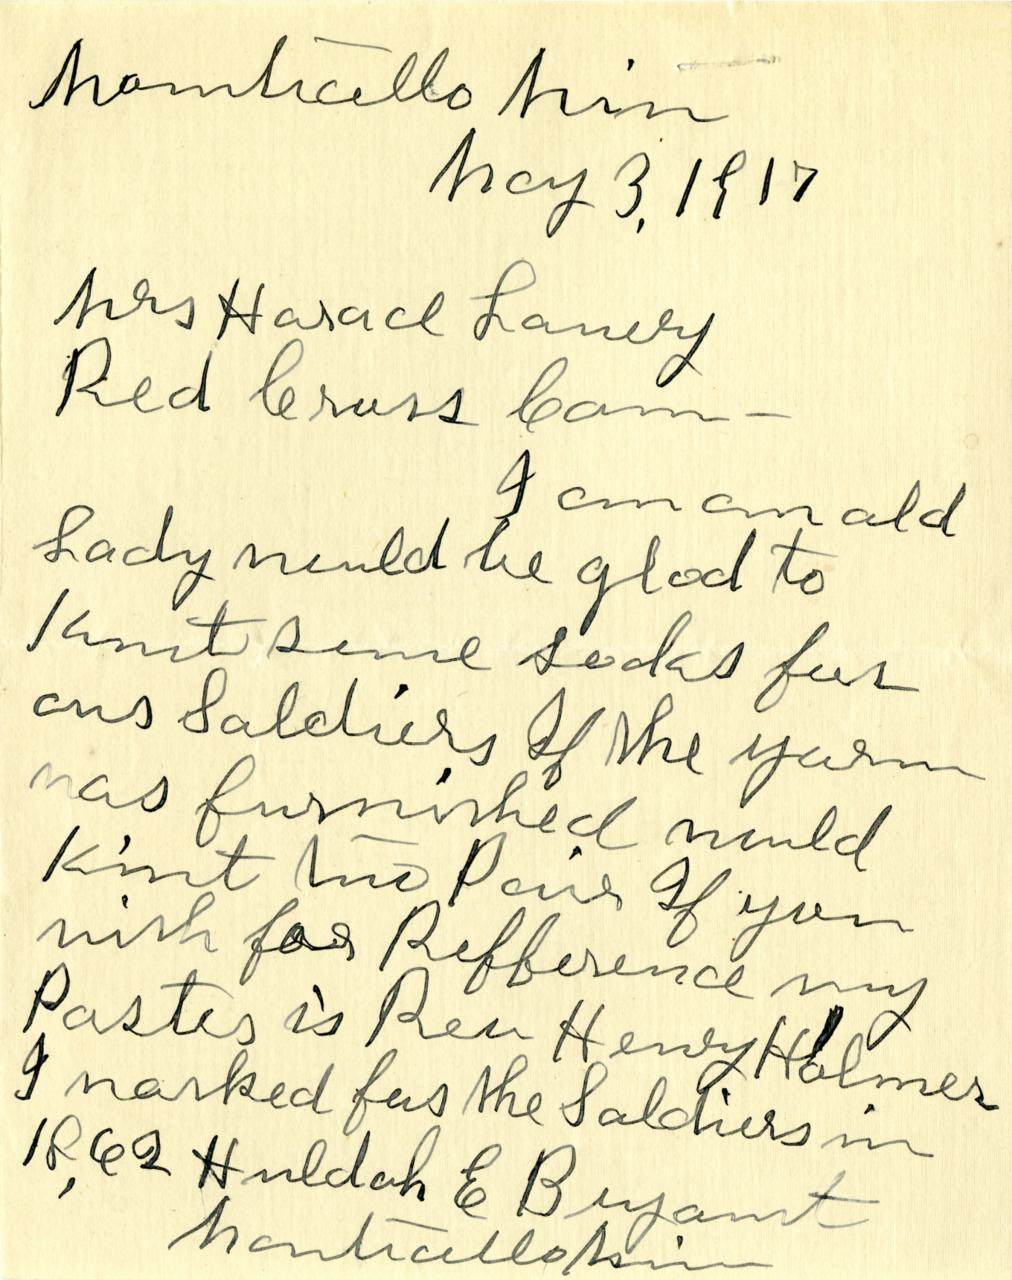 Monticello Minn
May 3, 1917
Mrs Horace Lowery
Red Cross Com –
I am an old
Lady would be glad to
Knit some socks for
our Soldiers If the yarn
was furnished would
Knit two Pair If you
wish for Refference my
Paster is Rev Henry Holmes
I worked for the Soldiers in
18,62 Huldah E Bryant
Monticello Minn